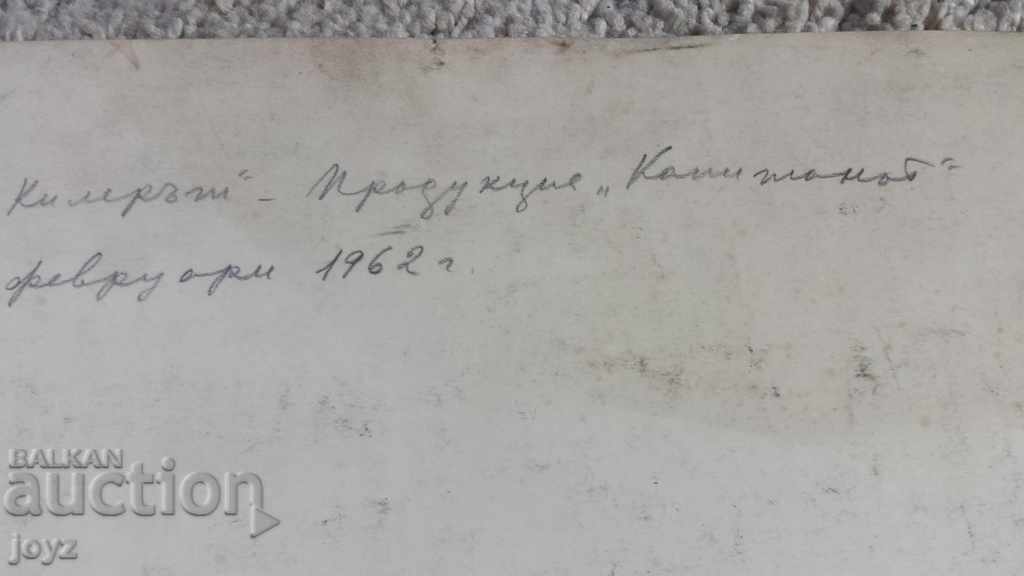 Килерът" - Продукция „Капитанът"
февруари 1962 г.
BALKAN
auction
joyz